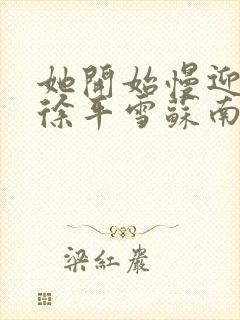 她開始慢迎
徐平雪蘇南
梁紅嚴